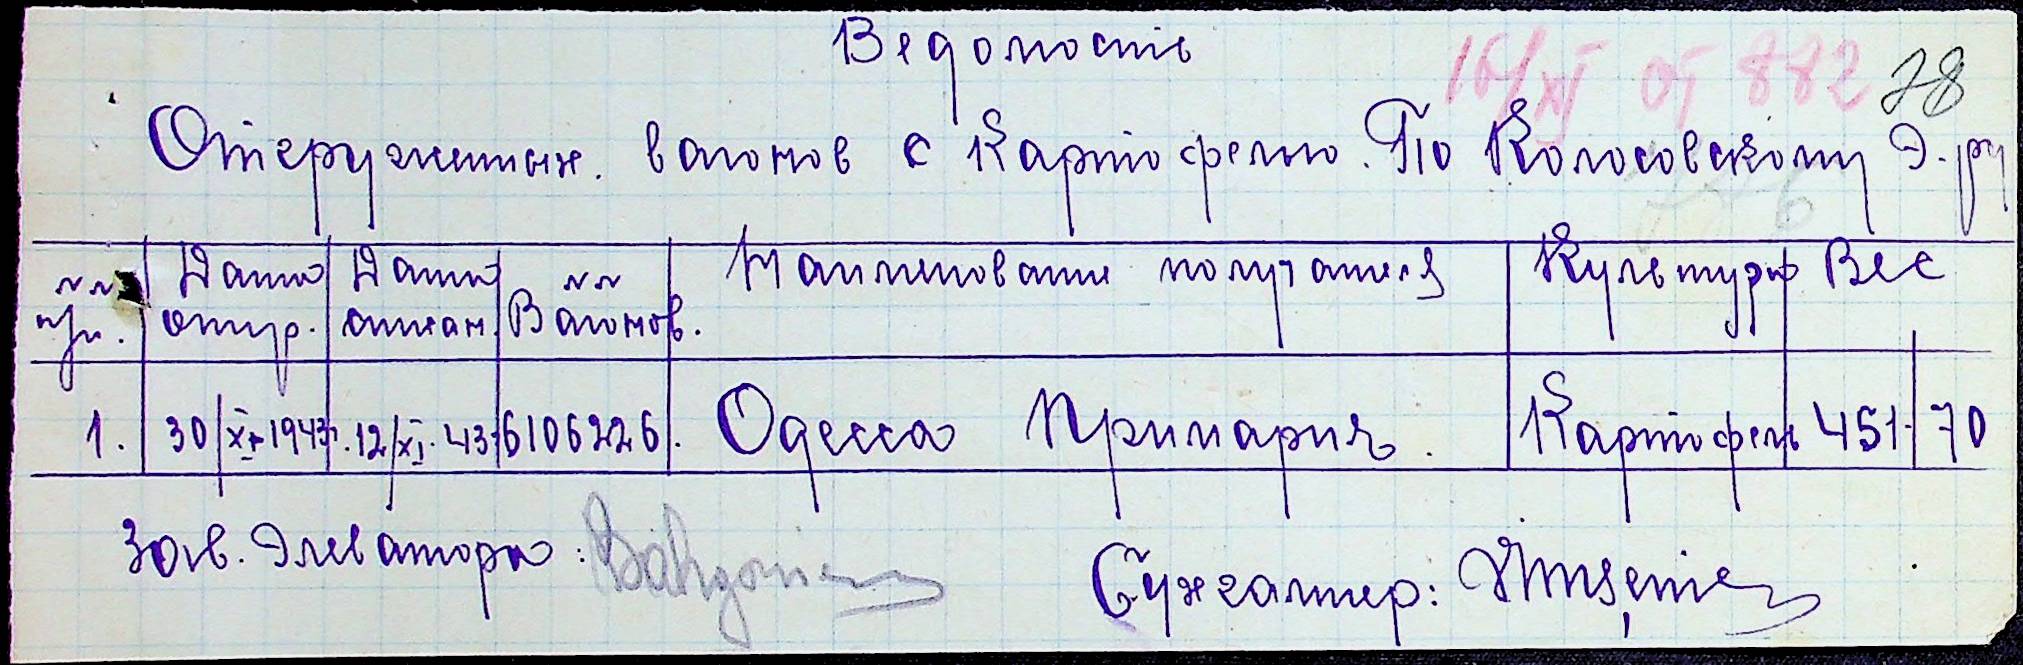 Ведомость
16/XI от 882 78
Отгруженных. вагонов с Картофелью. По Колосовскому Э-ру
№№ п/п. Дата отгр. Дата отпан. №№ Вагонов. Наименование получателя Культура Вес
1. 30/X-1943г. 12/XI-43г 6106226. Одесса Примария. Картофель 451-70
Зав. Элеватора: Бухгалтер: